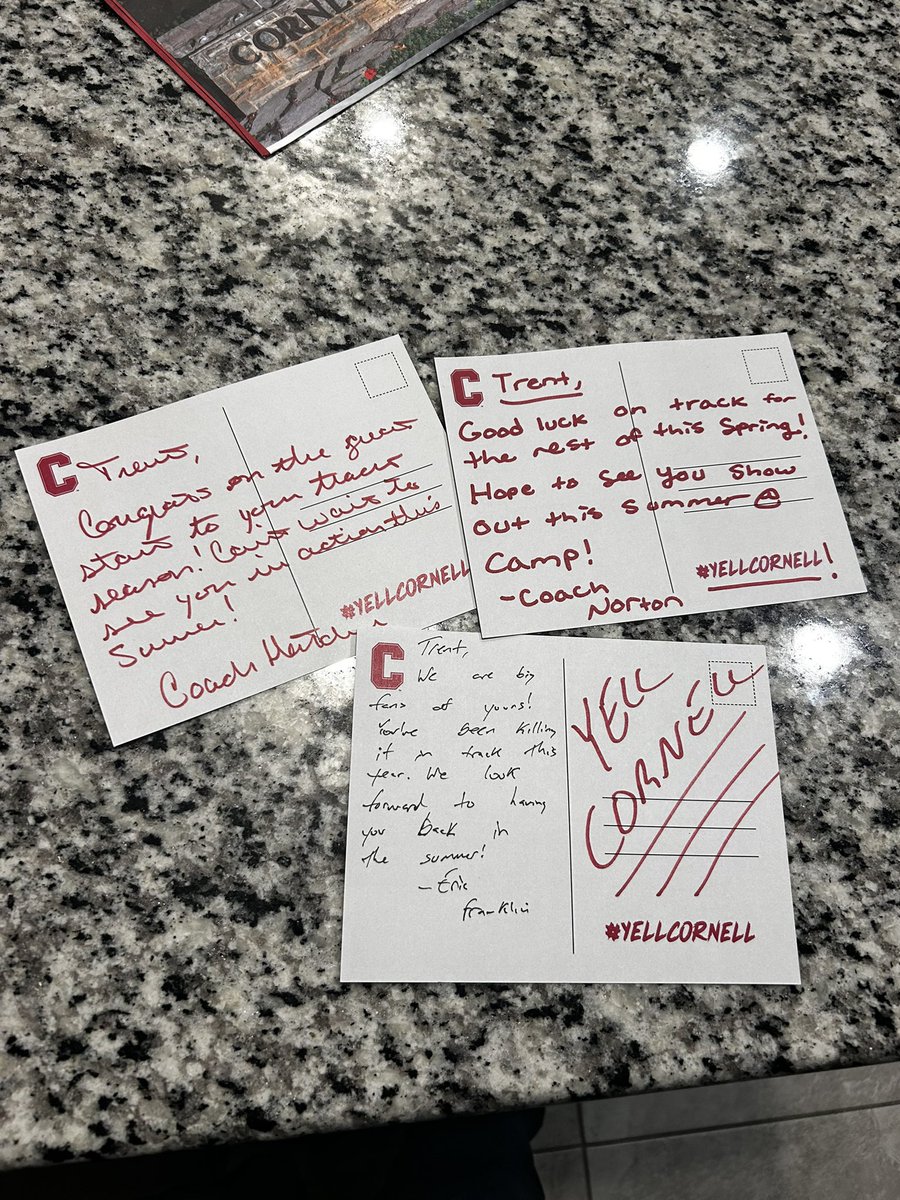 CORNELL
C Trent,
Congrats on the great
start to your track
season! Can't wait to
see you in action this
Summer!
Coach
#YELLCORNELL
C Trent,
Good luck on track for
the rest of this Spring!
Hope to see you show
out this summer @
Camp!
-Coach
Norton
#YELLCORNELL!
C Trent,
We are big
fans of yours!
You've been killing
it in track this
year. We look
forward to having
you back in
the summer!
- Eric
Franklin
YELL
CORNELL
#YELLCORNELL